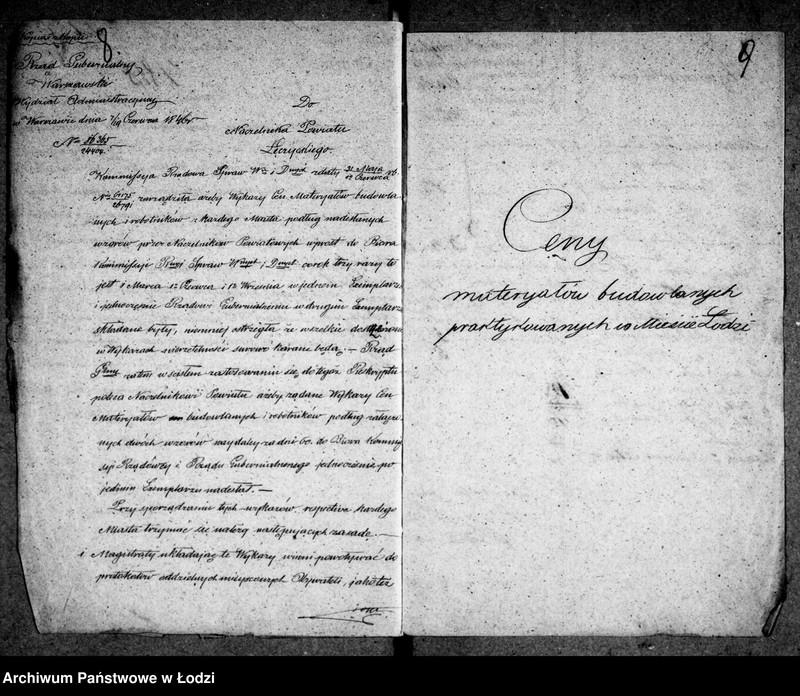 Kopia z Kopii
8
Rząd Gubernialny
Warszawski
Wydział Administracyjny
w Warszawie dnia 7/19 Czerwca 1846 r
No 56365/24404
Do
Naczelnika Powiatu
Łęczyckiego.
Kommissyja Rządowa Spraw Wch i Dnych z daty 31 Maja/12 Czerwca r.b.
No zarządziła ażeby Wykazy Cen Materyałów budowla
nych i robotników z każdego Miasta podług nadesłanych
wzorów przez Naczelników Powiatowych wprost do Biura
Kommissyi Rwej Spraw Wnych i Dnych corok trzy razy to
jest 1 Marca 1 Czerwca i 1 Września w jednem Exemplarzu
i jednocześnie Rządowi Gubernialnemu w drugim Exemplarzu
składane były, niemniej ostrzegła że wszelkie dostrzeżone
w Wykazach nierzetelności surowo karane będą. — Rząd
Glny zatem w ścisłem zastosowaniu się do tegoż Reskryptu
poleca Naczelnikowi Powiatu ażeby żądane Wykazy Cen
Materyałów budowlanych i robotników podług załączo
nych dwóch wzorów najdalej za dni 60. do Biura Kommis
syi Rządowéj i Rządu Gubernialnego jednocześnie po
jednem Exemplarzu nadesłał. —
Przy sporządzaniu tych wykazów, respective każdego
Miasta trzymać się należy następujących zasad. —
1 Magistraty układając te Wykazy winni powoływać do
protokołów oddzielnych miejscowych Obywateli, jako też
9
Ceny
materyałów budowlanych
praktykowanych w Mieście Łodzi
Archiwum Państwowe w Łodzi